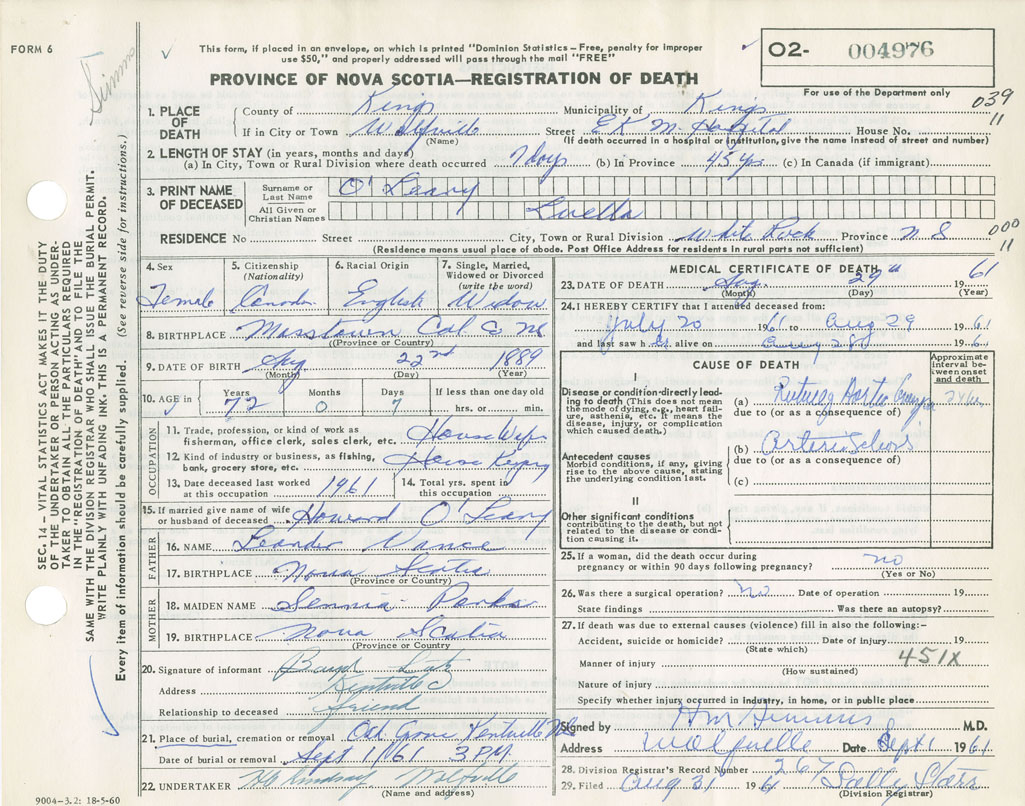 FORM 6
This form, if placed in an envelope, on which is printed "Dominion Statistics – Free, penalty for improper
use $50," and properly addressed will pass through the mail "FREE"
O2- 004976
PROVINCE OF NOVA SCOTIA—REGISTRATION OF DEATH
For use of the Department only
039
11
1. PLACE OF DEATH County of Kings Municipality of Kings
If in City or Town Wolfville Street E K M Hospital House No.
(Name) (If death occurred in a hospital or institution, give the name instead of street and number)
2. LENGTH OF STAY (in years, months and days)
(a) In City, Town or Rural Division where death occurred 7 days (b) In Province 45 yrs (c) In Canada (if immigrant)
3. PRINT NAME OF DECEASED Surname or Last Name O'Leary
All Given or Christian Names Luella
RESIDENCE No Street City, Town or Rural Division White Rock Province N S
000
11
(Residence means usual place of abode. Post Office Address for residents in rural parts not sufficient)
4. Sex Female
5. Citizenship (Nationality)
6. Racial Origin English
7. Single, Married, Widowed or Divorced (write the word) Widow
8. BIRTHPLACE Masstown Col Co
(Province or Country)
9. DATE OF BIRTH Aug 22nd 1889
(Month) (Day) (Year)
10. AGE in Years 72 Months 0 Days 7 If less than one day old hrs. or min.
OCCUPATION
11. Trade, profession, or kind of work as fisherman, office clerk, sales clerk, etc. House Wife
12. Kind of industry or business, as fishing, bank, grocery store, etc. House Keeping
13. Date deceased last worked at this occupation 1961
14. Total yrs. spent in this occupation
15. If married give name of wife or husband of deceased Howard O'Leary
FATHER
16. NAME Leander Vance
17. BIRTHPLACE Nova Scotia
(Province or Country)
MOTHER
18. MAIDEN NAME
19. BIRTHPLACE Nova Scotia
(Province or Country)
20. Signature of informant
Address Kentville
Relationship to deceased Friend
21. Place of burial, cremation or removal Oak Grove Kentville NS
Date of burial or removal Sept 1/61 3 PM
22. UNDERTAKER Wolfville
(Name and address)
9004-3.2: 18-5-60
MEDICAL CERTIFICATE OF DEATH
23. DATE OF DEATH Aug 29th 1961
(Month) (Day) (Year)
24. I HEREBY CERTIFY that I attended deceased from:
July 20 1961 to Aug 29 1961
and last saw h er alive on Aug 28 1961
CAUSE OF DEATH
Approximate interval between onset and death
I
Disease or condition directly leading to death (This does not mean the mode of dying, e.g., heart failure, asthenia, etc. It means the disease, injury, or complication which caused death.)
(a)
due to (or as a consequence of)
Antecedent causes
Morbid conditions, if any, giving rise to the above cause, stating the underlying condition last.
(b)
due to (or as a consequence of)
(c)
II
Other significant conditions contributing to the death, but not related to the disease or condition causing it.
25. If a woman, did the death occur during
pregnancy or within 90 days following pregnancy? no
(Yes or No)
26. Was there a surgical operation? no Date of operation 19
State findings Was there an autopsy?
27. If death was due to external causes (violence) fill in also the following:–
Accident, suicide or homicide? Date of injury 19
(State which)
451X
Manner of injury
(How sustained)
Nature of injury
Specify whether injury occurred in industry, in home, or in public place
Signed by M.D.
Address Wolfville Date Sept 1 1961
28. Division Registrar's Record Number 267
29. Filed Aug 31 1961 Sally Starr
(Division Registrar)
SEC. 14 – VITAL STATISTICS ACT MAKES IT THE DUTY
OF THE UNDERTAKER OR PERSON ACTING AS UNDER-
TAKER TO OBTAIN ALL THE PARTICULARS REQUIRED
IN THE "REGISTRATION OF DEATH" AND TO FILE THE
SAME WITH THE DIVISION REGISTRAR WHO SHALL ISSUE THE BURIAL PERMIT.
WRITE PLAINLY WITH UNFADING INK. THIS IS A PERMANENT RECORD.
Every item of information should be carefully supplied. (See reverse side for instructions.)